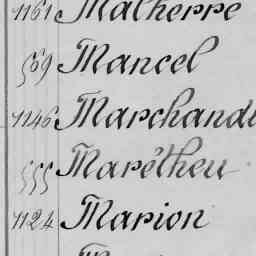 1161 Malherre
569 Mancel
1146 Marchand
555 Marétheu
1124 Marion